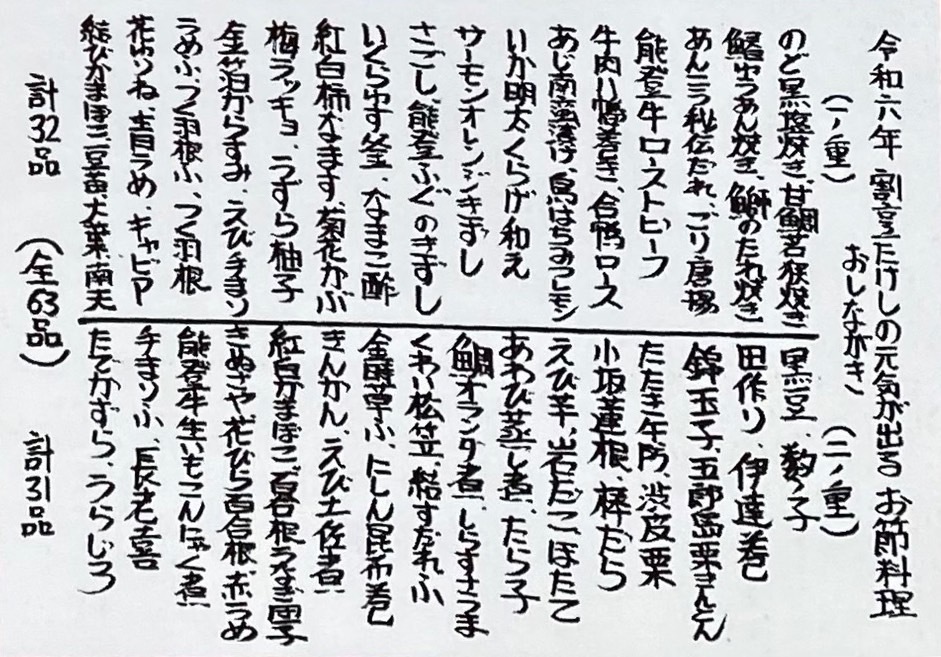 令和六年 割烹たけしの元気が出る お節料理
おしながき
(一ノ重)
のど黒塩焼き、甘鯛若狭焼き
鰆ゆうあん焼き、鰤のたれ焼き
あん三う秘伝だれ、ごり唐揚
能登牛ロストビーフ
牛肉八幡巻き、合鴨ロース
あじ南蛮漬け、鳥はちみつレモン
いか明太、くらげ和え
サーモンオレンジきずし
さごし、能登ふぐのきずし
いくらゆず釜、なまこ酢
紅白柿なます、菊花かぶ
梅ラッキョ、うずら柚子
金箔からすみ、えび手まり
うめふ、つく羽根ふ、つく羽根
花ゆりね、青うめ、キャビア
結びかまぼこ、豆苗、大葉、南天
計32品
(全63品)
(二ノ重)
黒豆、数ノ子
田作り、伊達巻
錦玉子、五郎島栗きんとん
たたき牛蒡、渋皮栗
小坂蓮根、棒だら
えび芋、岩だこ、ほたて
あわび蒸し煮、たら子
鯛オランダ煮、しらすさつま
くわい松笠、結すだれふ
金時草ふ、にしん昆布巻
きんかん、えび土佐煮
紅白かまぼこ、百合根うさぎ、雪子
きぬさや、花びら百合根、赤うめ
能登牛生いもこんにゃく煮
手まりふ、長老喜
たてかずら、うらじろ
計31品